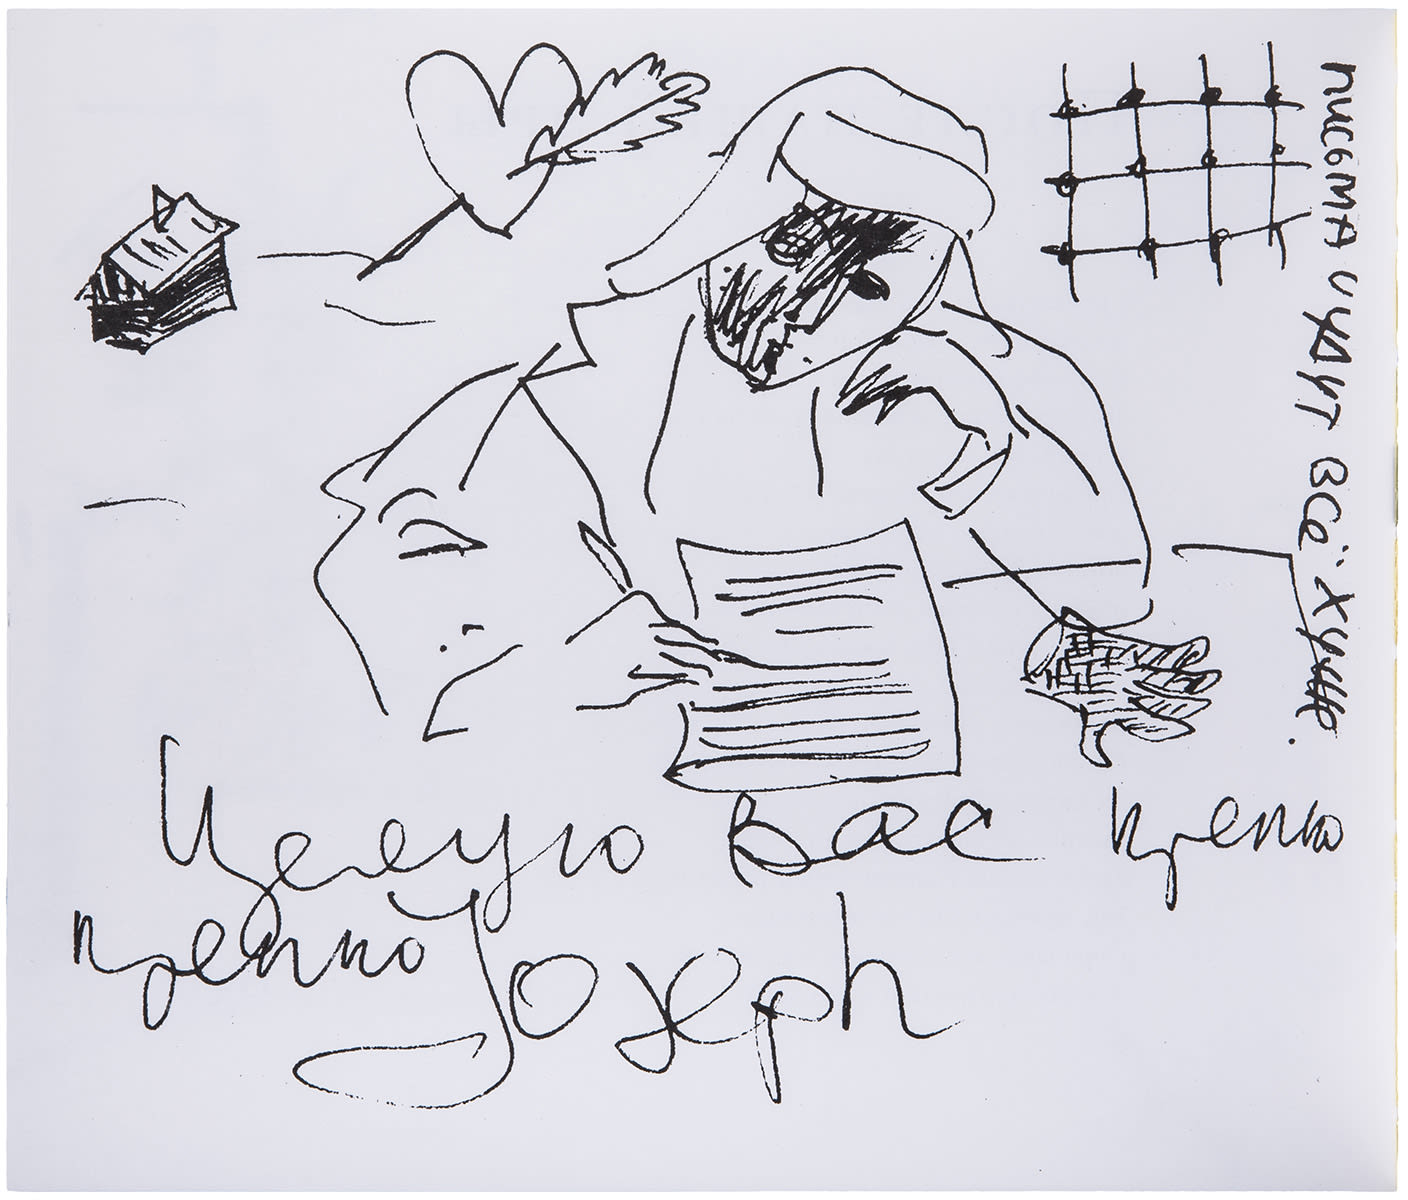 письма идут всё хуже.
Целую вас крепко
крепко
Joseph